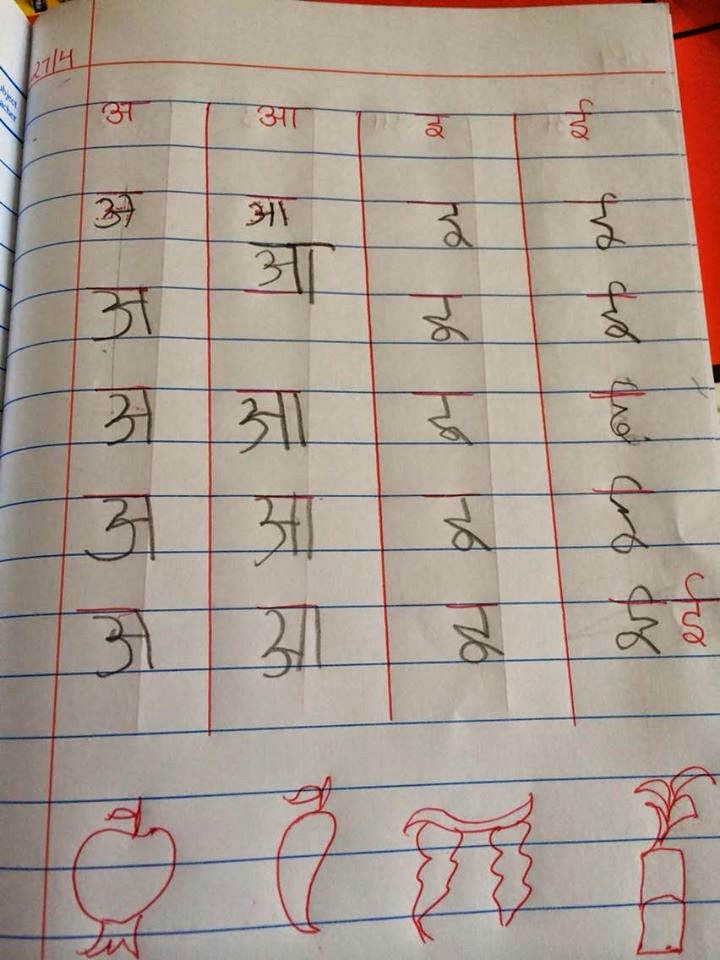 27/4
अ आ इ ई
अ आ इ ई
आ
अ इ ई
अ आ इ ई
अ आ इ ई
अ आ इ ई ई